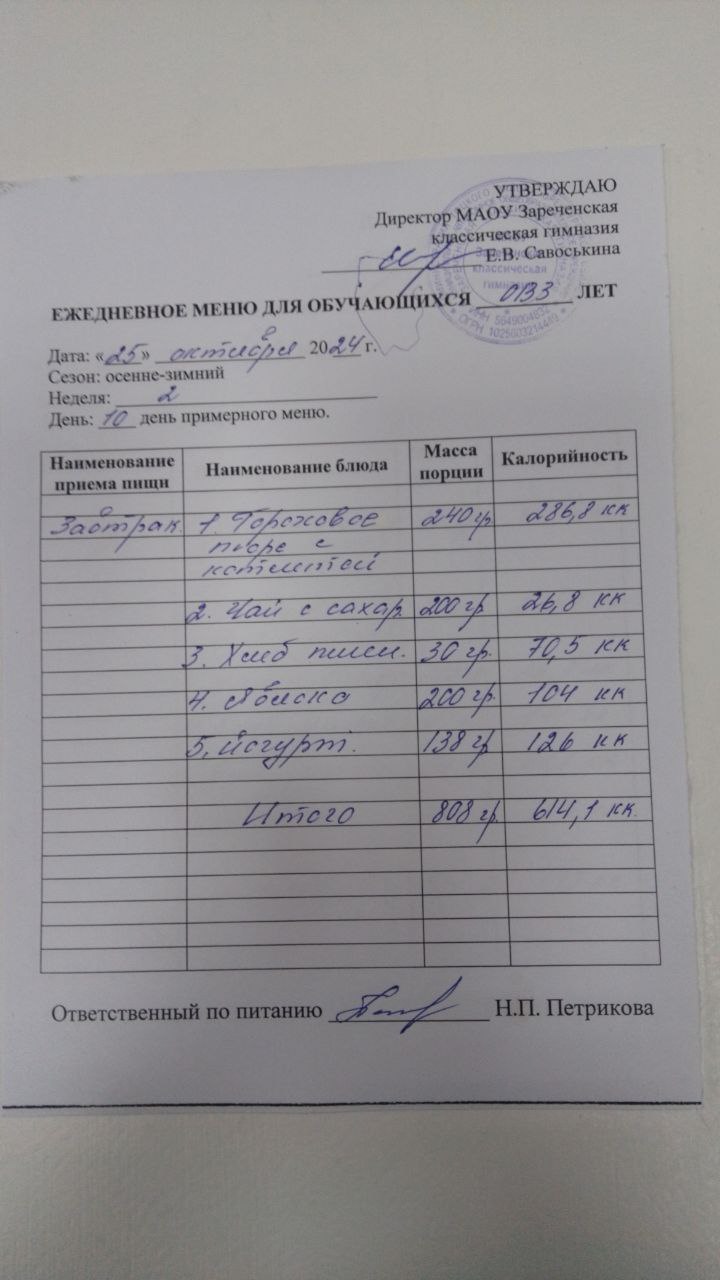 УТВЕРЖДАЮ
Директор МАОУ Зареченская
классическая гимназия
Е.В. Савоськина
ЕЖЕДНЕВНОЕ МЕНЮ ДЛЯ ОБУЧАЮЩИХСЯ ОВЗ ЛЕТ
Дата: «25» октября 2024 г.
Сезон: осенне-зимний
Неделя: 2
День: 10 день примерного меню.
Наименование приема пищи Наименование блюда Масса порции Калорийность
Завтрак 1. Гороховое 240 гр 286,8 кк
пюре с
котлетой
2. Чай с сахар 200 гр 26,8 кк
3. Хлеб пшен. 30 гр. 70,5 кк
4. Яблоко 200 гр. 104 кк
5. Йогурт. 138 гр 126 кк
Итого 808 гр. 614,1 кк.
Ответственный по питанию Н.П. Петрикова